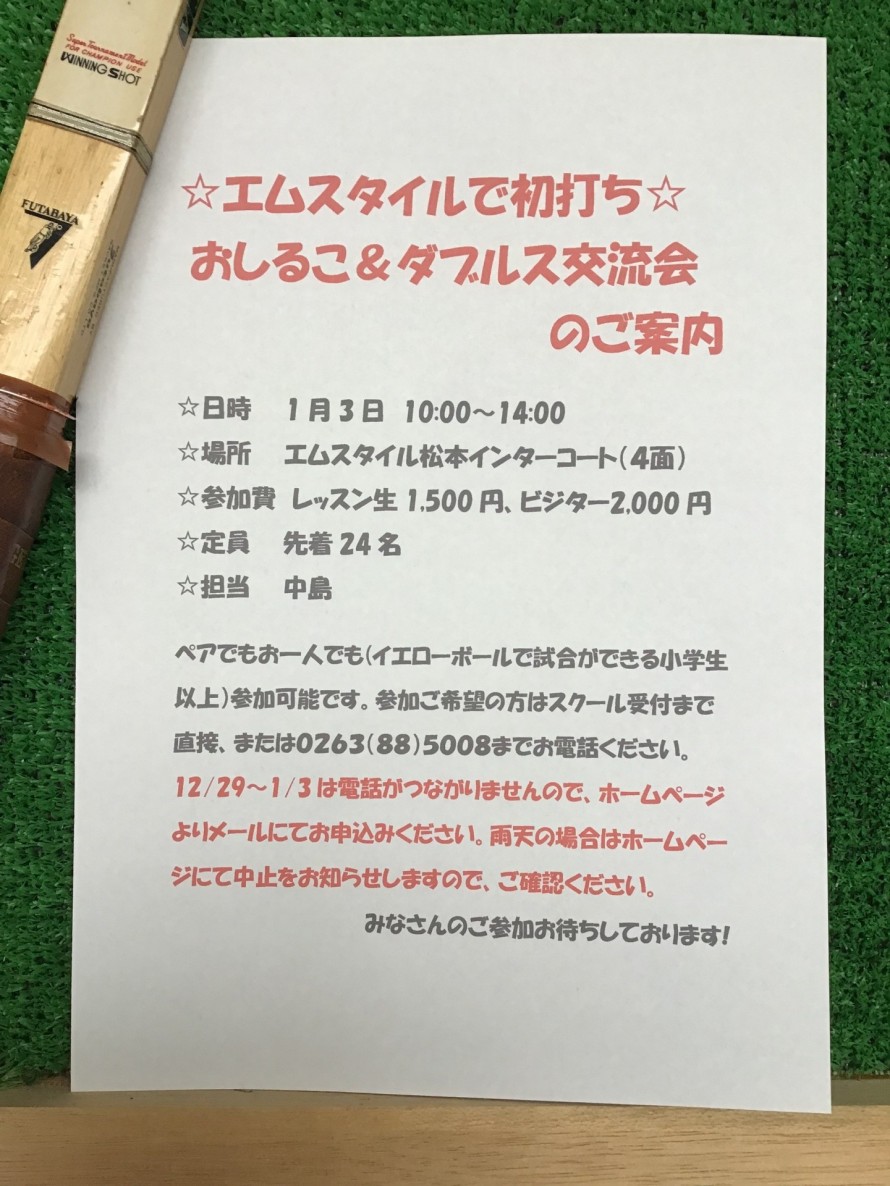 Super Tournament Model
FOR CHAMPION USE
WINNING SHOT
FUTABAYA
☆エムスタイルで初打ち☆
おしるこ＆ダブルス交流会
のご案内
☆日時　1月3日　10:00～14:00
☆場所　エムスタイル松本インターコート（4面）
☆参加費　レッスン生1,500円、ビジター2,000円
☆定員　先着24名
☆担当　中島
ペアでもお一人でも（イエローボールで試合ができる小学生
以上）参加可能です。参加ご希望の方はスクール受付まで
直接、または0263（88）5008までお電話ください。
12/29～1/3は電話がつながりませんので、ホームページ
よりメールにてお申込みください。雨天の場合はホームペー
ジにて中止をお知らせしますので、ご確認ください。
みなさんのご参加お待ちしております!